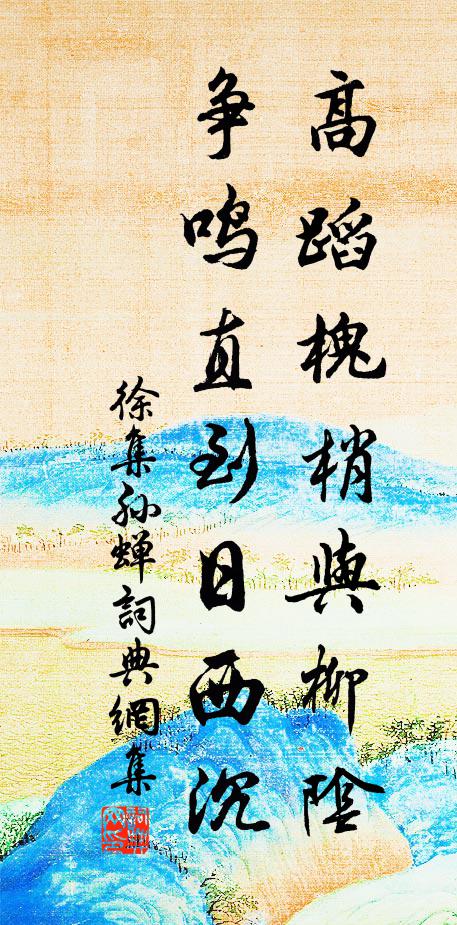 高蹈槐梢與柳陰
争鸣直到日西沉
徐集孙蝉詞典網集